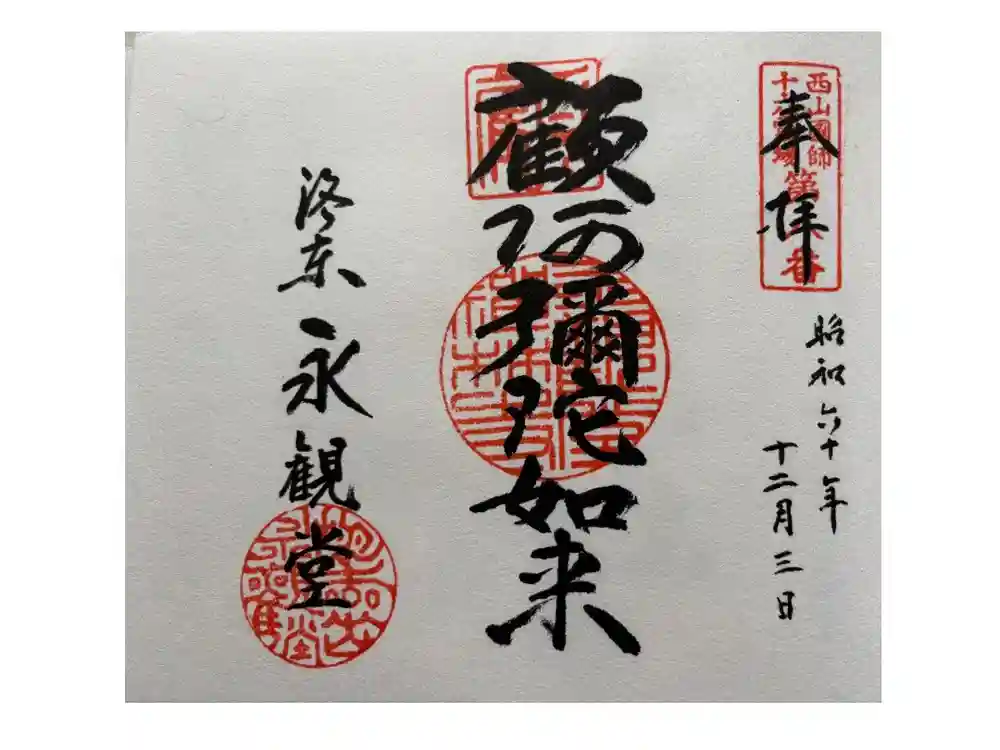 奉拝
西山國師
昭和六十年
十二月三日
顧阿彌陀如来
洛東 永観堂